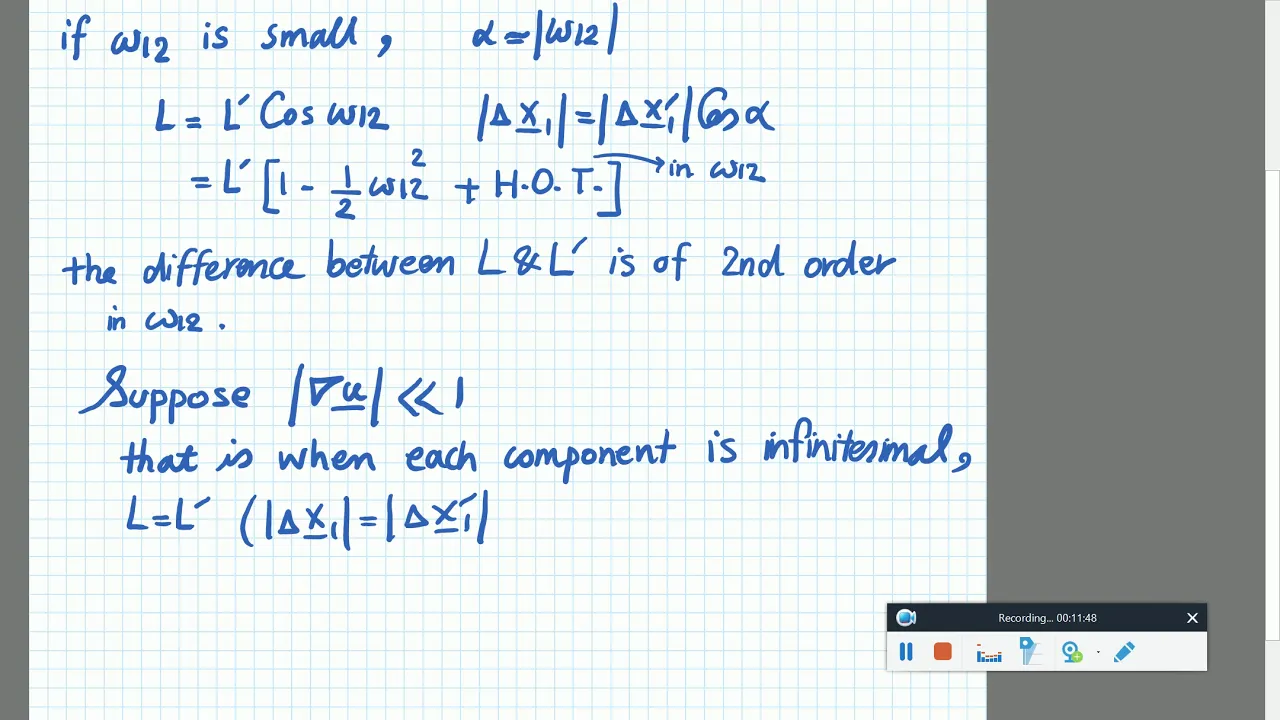 if ω12 is small, α ≃ |ω12|
L = L′ Cos ω12 |Δ X̲₁| = |Δ X̲′₁| Cos α
= L′ [1 - 1/2 ω12² + H.O.T.] → in ω12
the difference between L & L′ is of 2nd order
in ω12.
Suppose |∇u̲| << 1
that is when each component is infinitesimal,
L = L′ (|Δ X̲₁| = |Δ X̲′₁|
Recording... 00:11:48